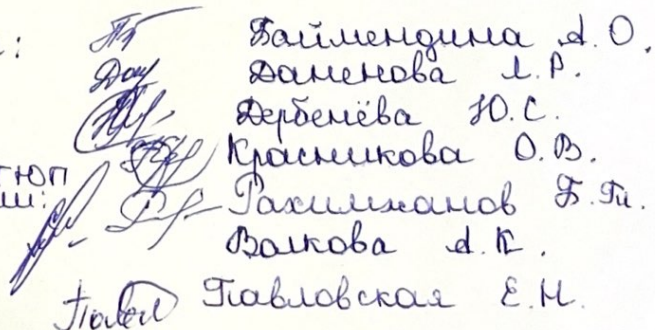 : Байменdина А. О.
Даненова Л. Р.
Дербенёва Ю. С.
Красникова О. В.
ТЮП
ши: Рахимжанов Б. Гл.
Волкова А. К.
Павловская Е. Н.